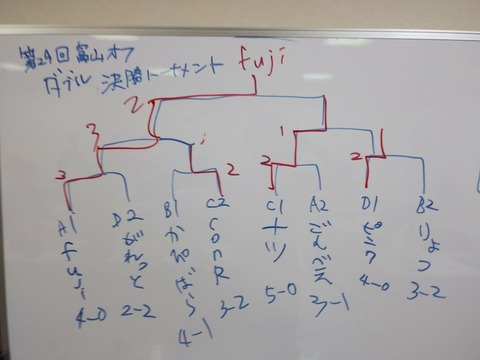 第29回富山オフ
ダブル 決勝トーナメント
fuji
2
3
1
1
3
2
2
2
A1
fuji
4-0
D2
がれっと
2-2
B1
かぷばら
4-1
C2
ConR
3-2
C1
ナツ
5-0
A2
3-1
D1
4-0
B2
りょう
3-2